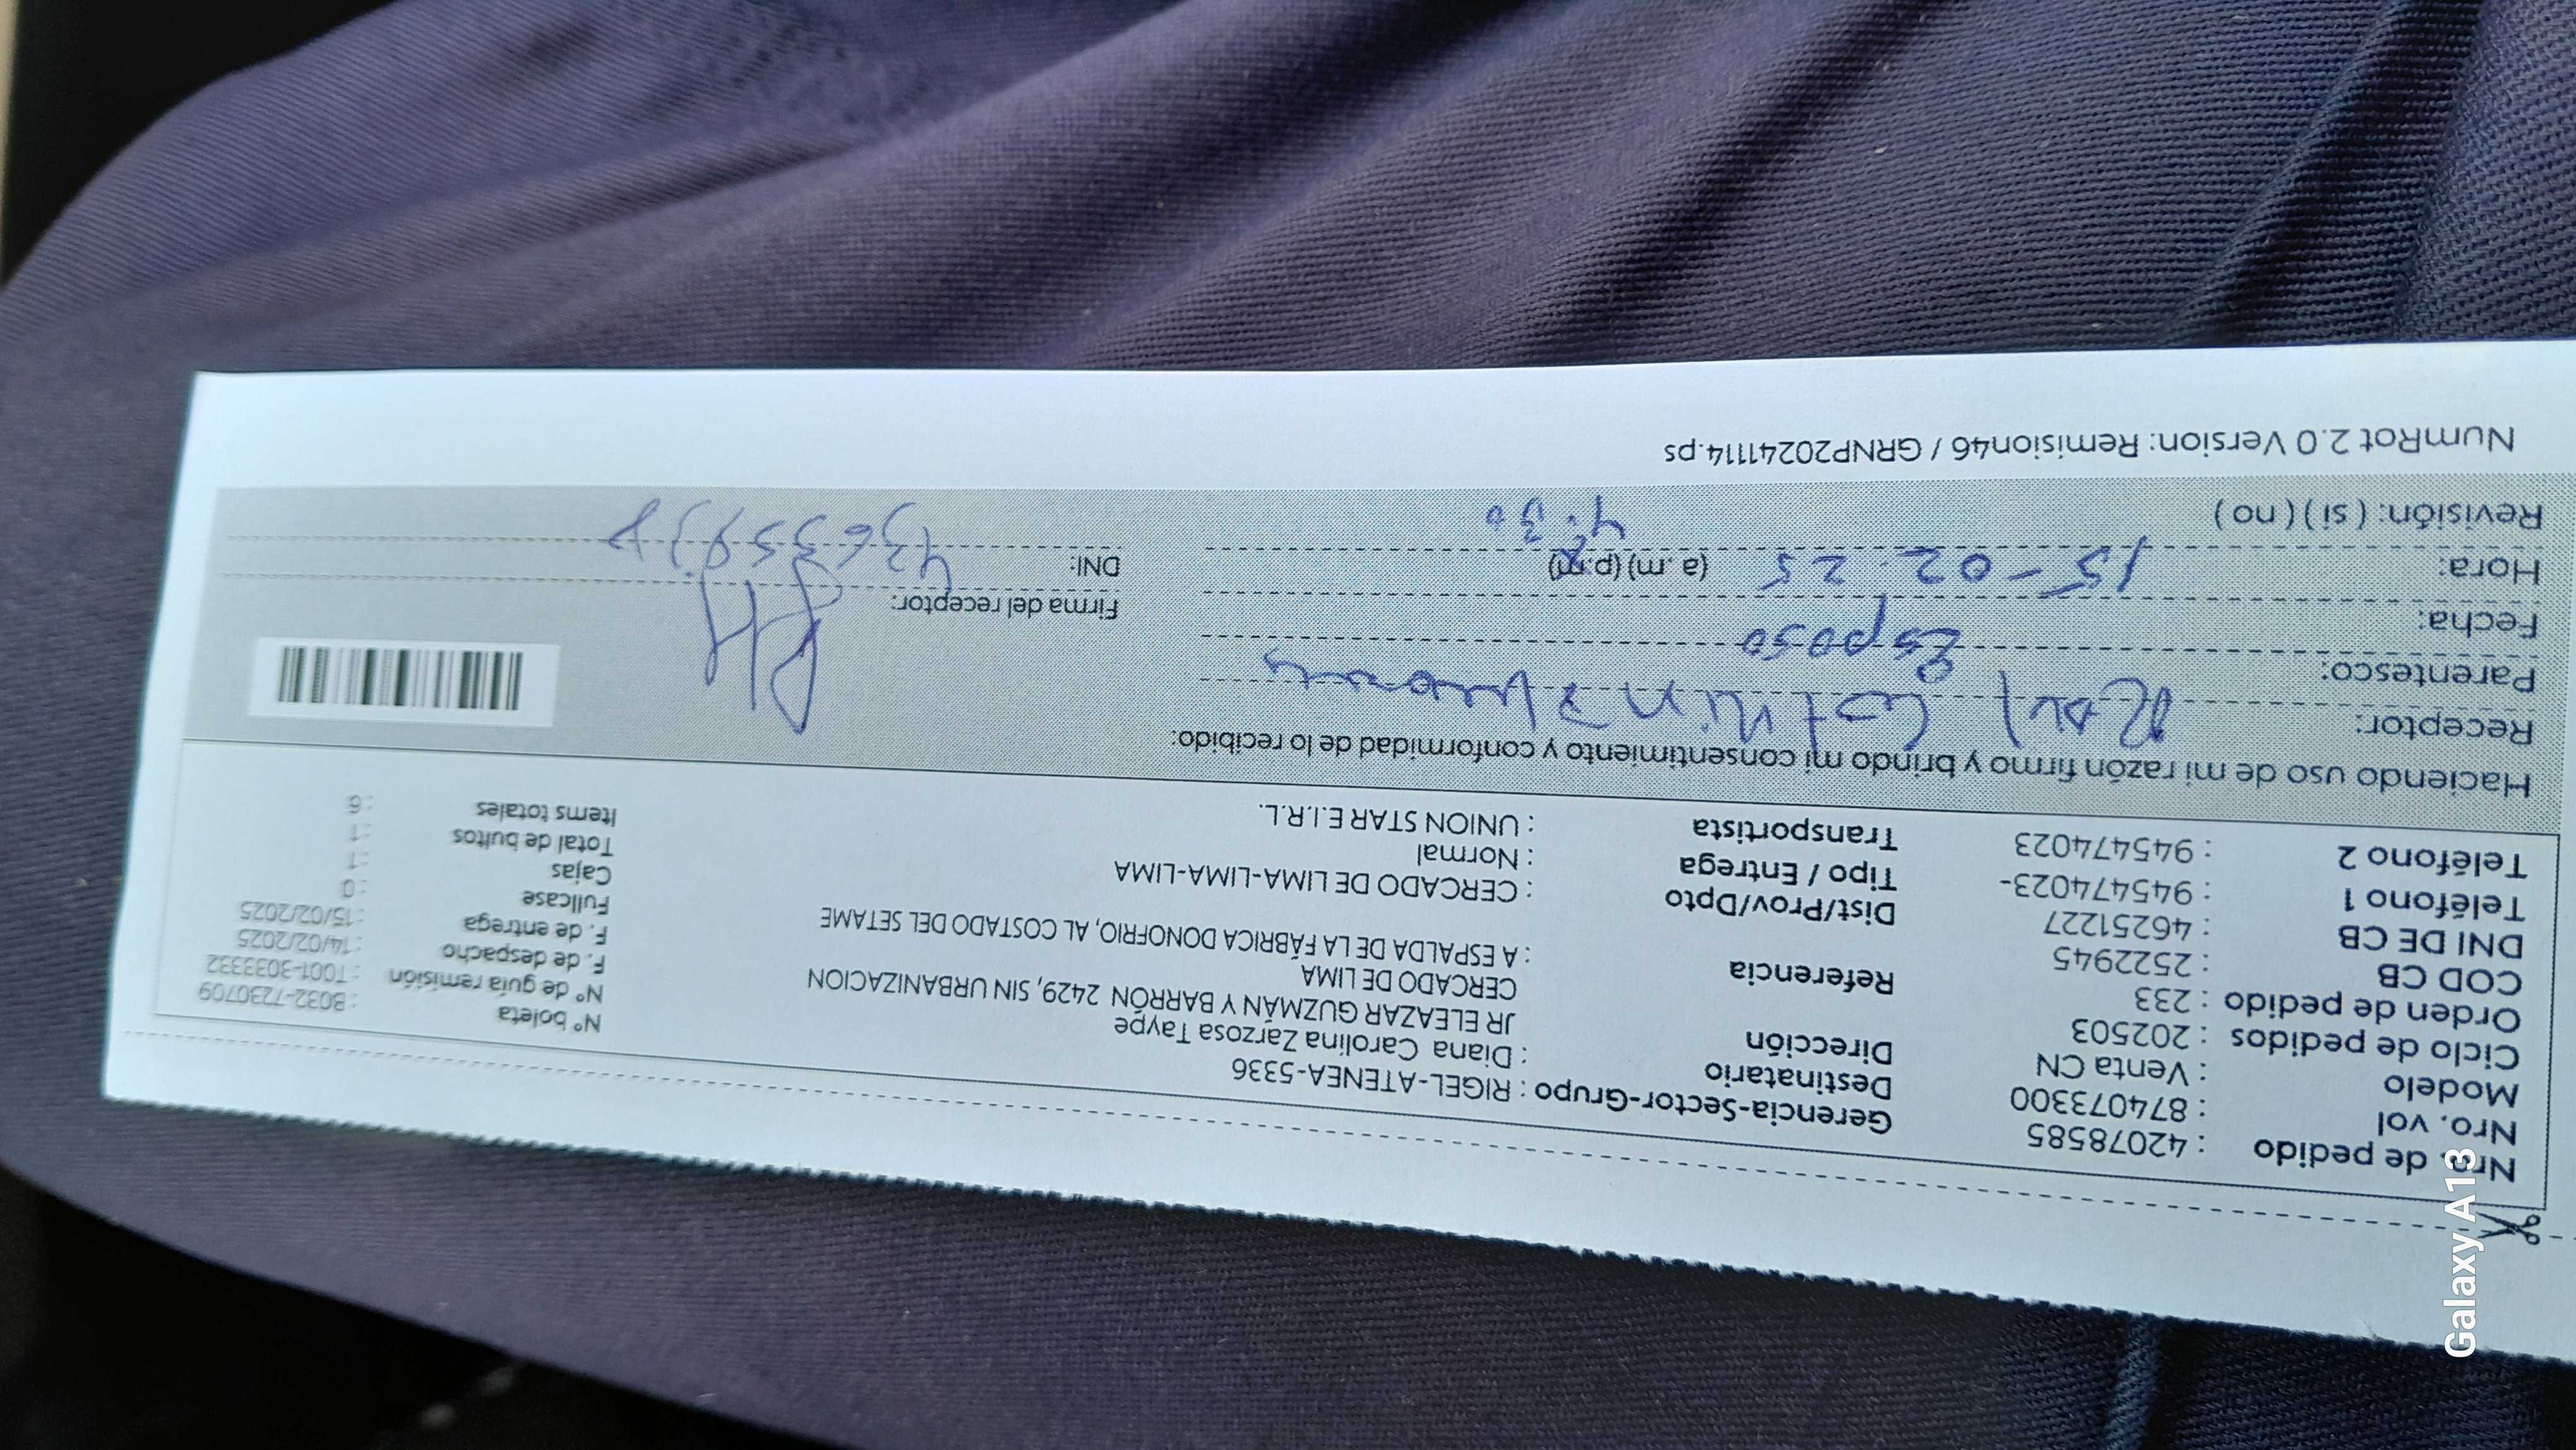 Nro. de pedido : 42078585
Nro. vol : 874073300
Modelo : Venta CN
Ciclo de pedidos : 202503
Orden de pedido : 233
COD CB : 2522945
DNI DE CB : 46251227
Teléfono 1 : 945474023-
Teléfono 2 : 945474023
Gerencia-Sector-Grupo : RIGEL-ATENEA-5336
Destinatario : Diana Carolina Zarzosa Taype
Dirección JR ELEAZAR GUZMÁN Y BARRÓN 2429, SIN URBANIZACION
CERCADO DE LIMA
Referencia : A ESPALDA DE LA FÁBRICA DONOFRIO, AL COSTADO DEL SETAME
Dist/Prov/Dpto : CERCADO DE LIMA-LIMA-LIMA
Tipo / Entrega : Normal
Transportista : UNION STAR E.I.R.L.
N° boleta : B032-7230709
N° de guía remisión : T001-3033332
F. de despacho : 14/02/2025
F. de entrega : 15/02/2025
Fullcase : 0
Cajas : 1
Total de bultos : 1
Items totales : 6
Haciendo uso de mi razón firmo y brindo mi consentimiento y conformidad de lo recibido:
Receptor: Raul
Parentesco: Esposo
Fecha: 15-02-25
Hora: (a.m) (p.m) 4:30
Revisión: ( si ) ( no )
Firma del receptor:
DNI:
NumRot 2.0 Version: Remision46 / GRNP20241114.ps
Galaxy A13